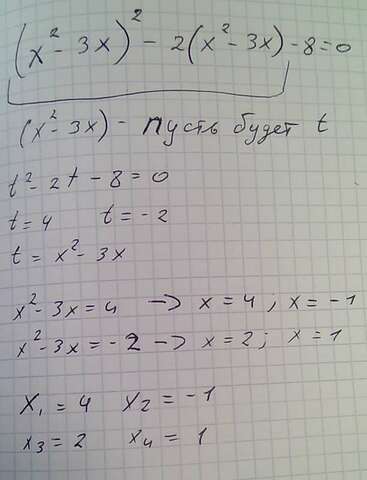 (x² - 3x)² - 2(x² - 3x) - 8 = 0
(x² - 3x) - пусть будет t
t² - 2t - 8 = 0
t = 4 t = -2
t = x² - 3x
x² - 3x = 4 -> x = 4 ; x = -1
x² - 3x = -2 -> x = 2 ; x = 1
X₁ = 4 X₂ = -1
x₃ = 2 x₄ = 1